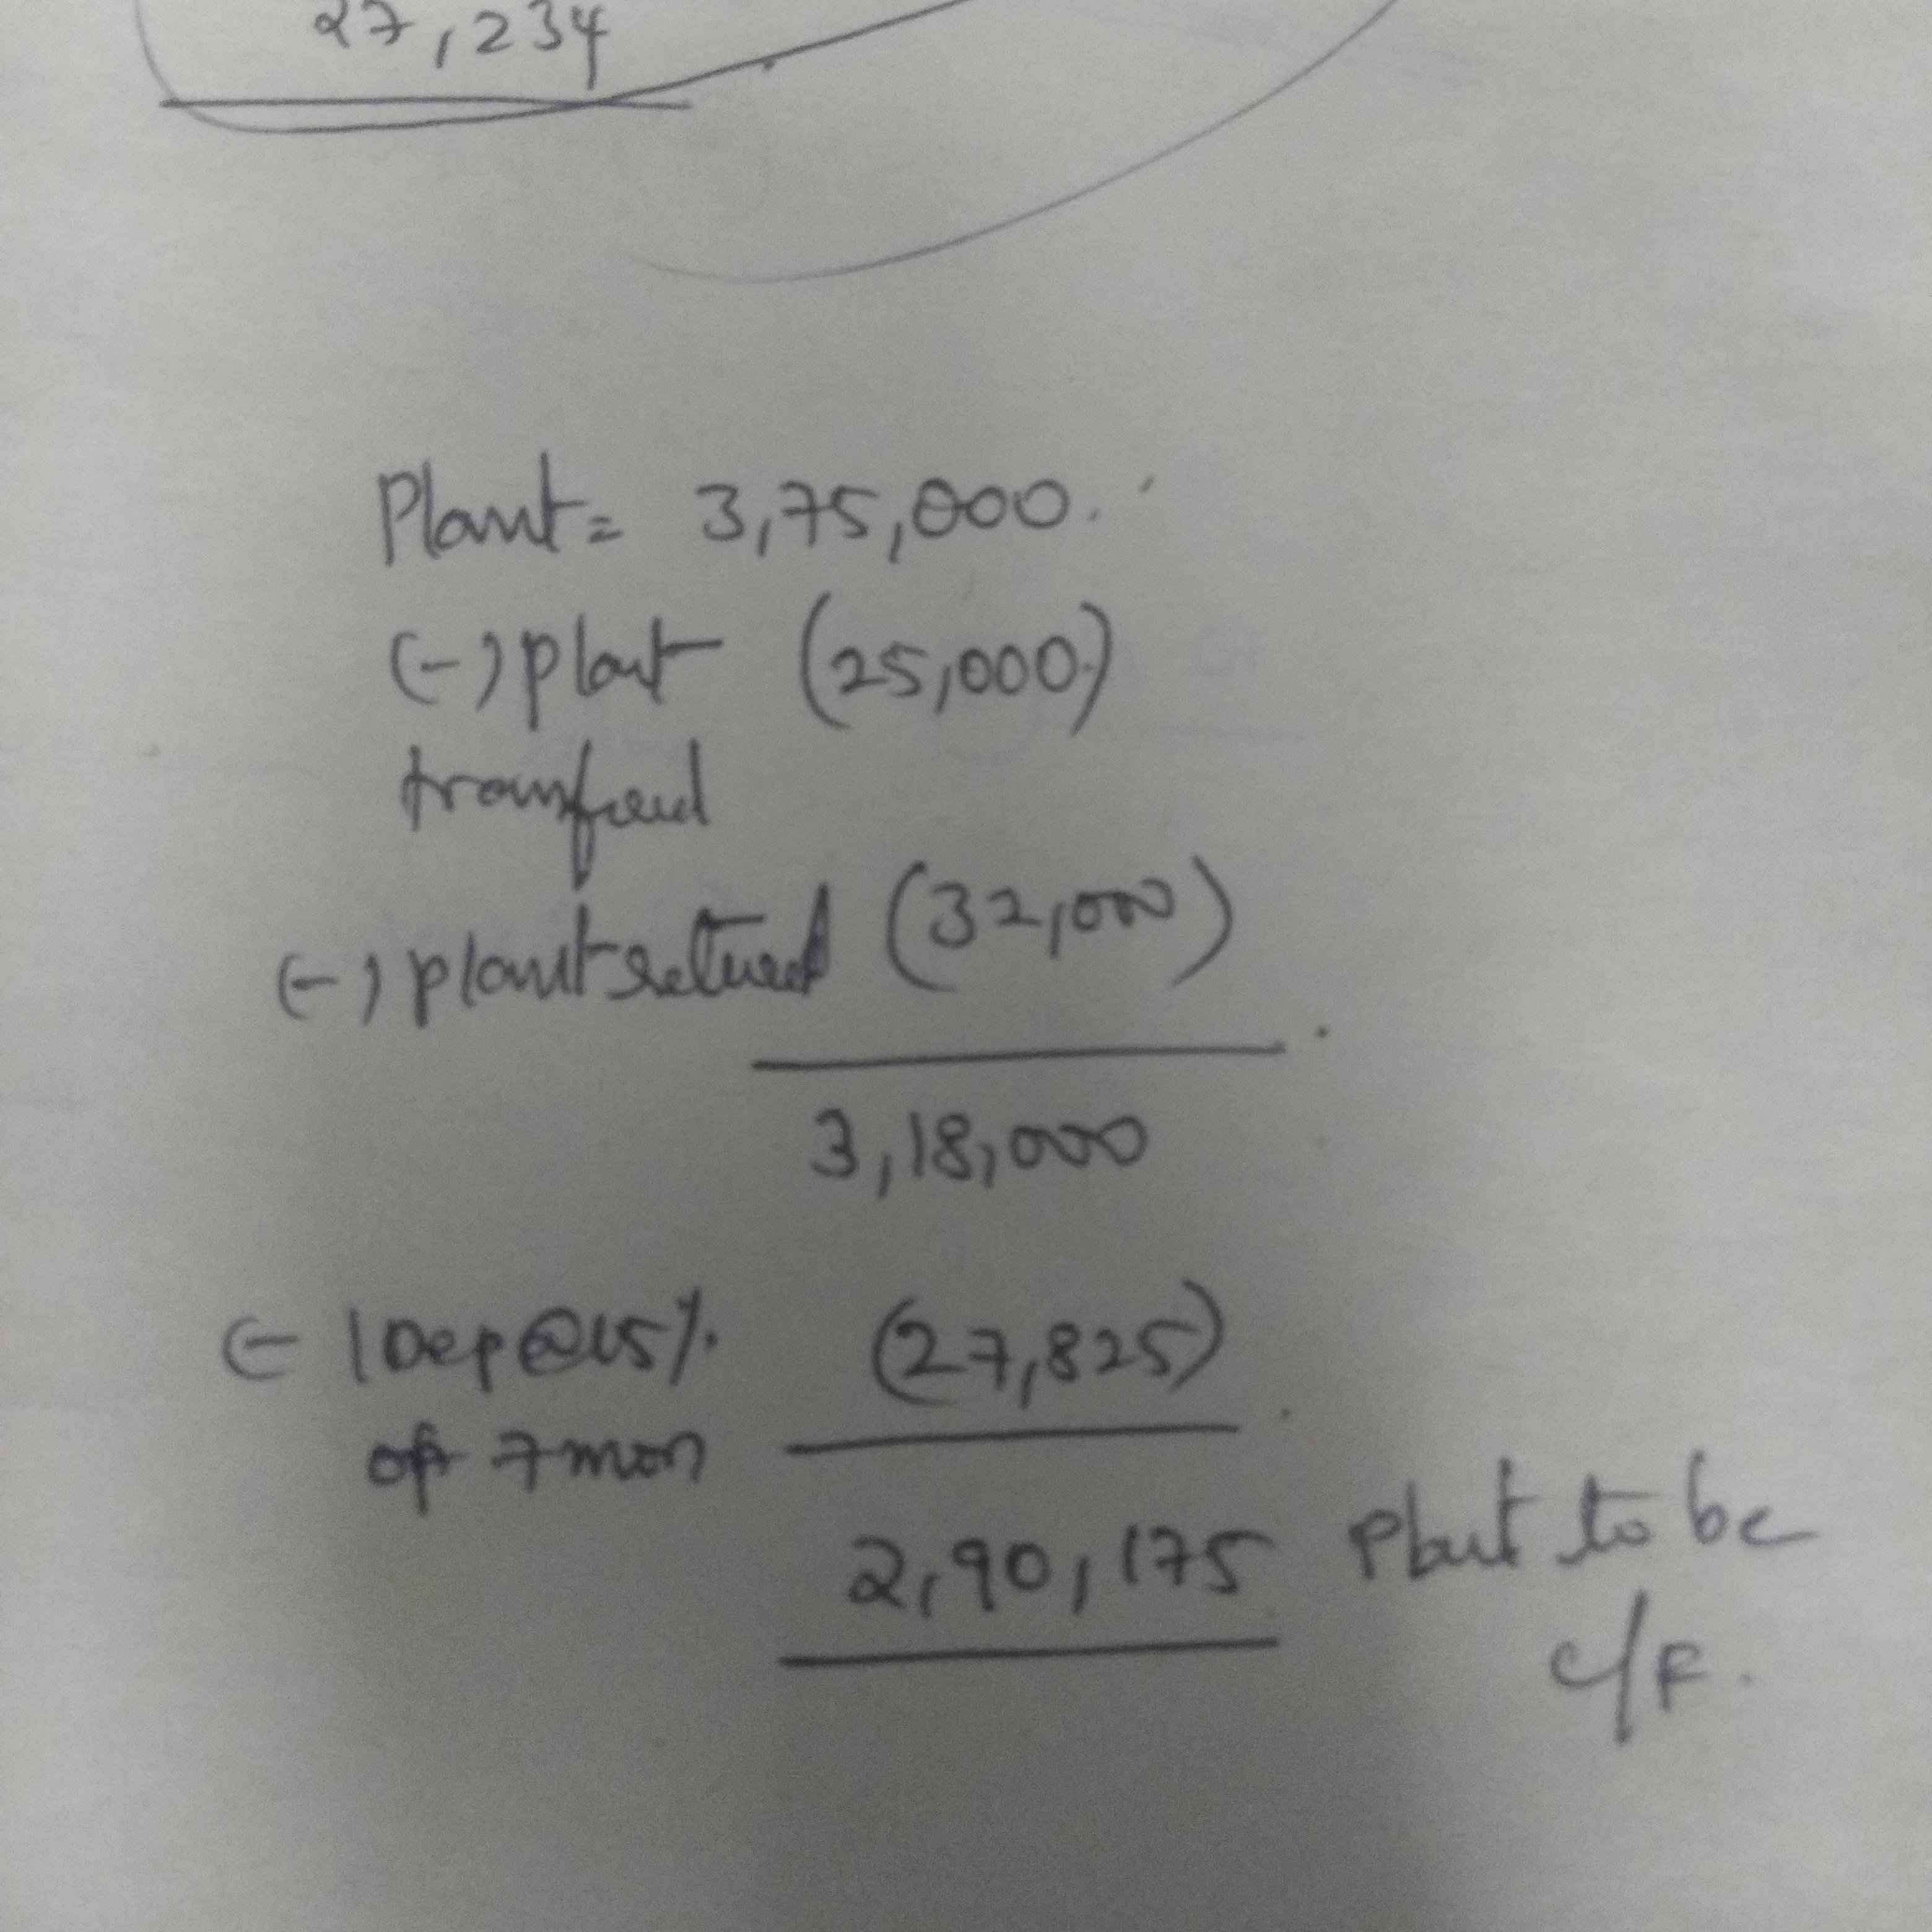 27,234
Plant = 3,75,000.
(-) plant (25,000)
transferred
(-) plant returned (32,000)
3,18,000
(-) Dep @ 15% (27,825)
of 7 mon
2,90,175 Plant to be
c/F.